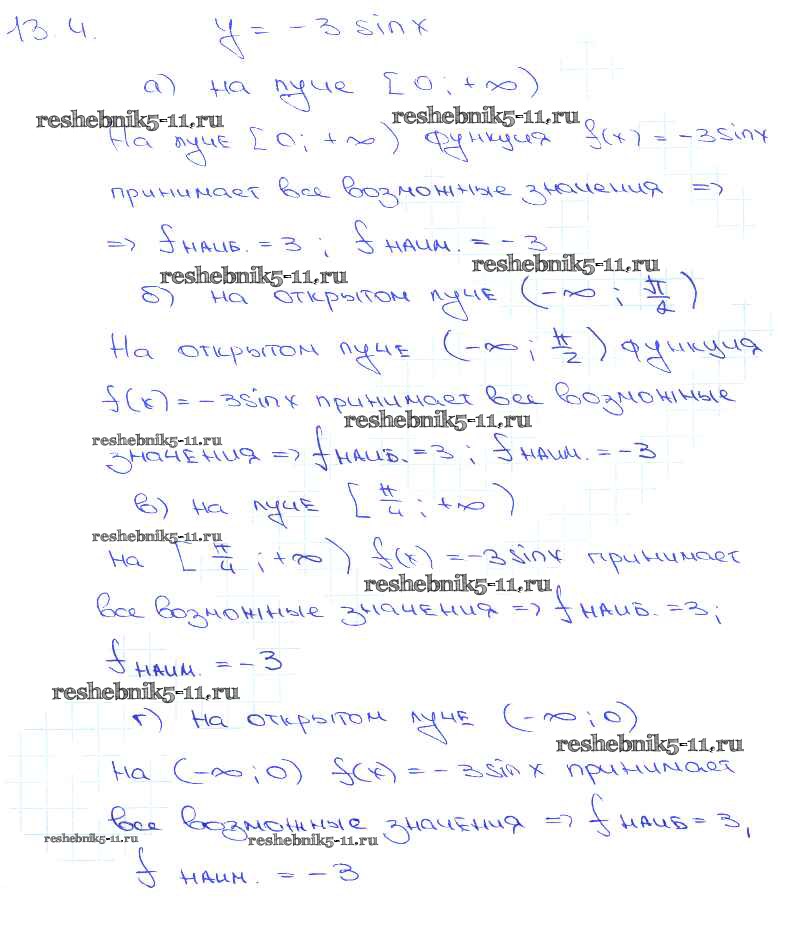 13.4. y = -3 sinx
а) на луче [0; +∞)
reshebnik5-11.ru reshebnik5-11.ru
На луче [0; +∞) функция f(x) = -3sinx
принимает все возможные значения =>
=> fнаиб. = 3; fнаим. = -3
reshebnik5-11.ru reshebnik5-11.ru
б) на открытом луче (-∞; π/2)
На открытом луче (-∞; π/2) функция
f(x) = -3sinx принимает все возможные
reshebnik5-11.ru
reshebnik5-11.ru
значения => fнаиб. = 3; fнаим. = -3
в) на луче [π/4; +∞)
reshebnik5-11.ru
на [π/4; +∞) f(x) = -3sinx принимает
reshebnik5-11.ru
все возможные значения => fнаиб. = 3;
fнаим. = -3
reshebnik5-11.ru
г) на открытом луче (-∞; 0)
reshebnik5-11.ru
на (-∞; 0) f(x) = -3sinx принимает
все возможные значения => fнаиб = 3,
reshebnik5-11.ru reshebnik5-11.ru
f наим. = -3